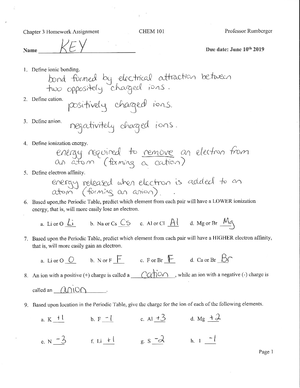 Chapter 3 Homework Assignment CHEM 101 Professor Rumberger
Name KEY Due date: June 10th 2019
1. Define ionic bonding.
bond formed by electrical attraction between
two oppositely charged ions.
2. Define cation.
positively charged ions.
3. Define anion.
negatively charged ions.
4. Define ionization energy.
energy required to remove an electron from
an atom (forming a cation)
5. Define electron affinity.
energy released when electron is added to an
atom (forming an anion)
6. Based upon the Periodic Table, predict which element from each pair will have a LOWER ionization
energy, that is, will more easily lose an electron.
a. Li or O Li b. Na or Cs Cs c. Al or Cl Al d. Mg or Br Mg
7. Based upon the Periodic Table, predict which element from each pair will have a HIGHER electron affinity,
that is, will more easily gain an electron.
a. Li or O O b. N or F F c. F or Br F d. Ca or Br Br
8. An ion with a positive (+) charge is called a cation, while an ion with a negative (-) charge is
called an anion.
9. Based upon location in the Periodic Table, give the charge for the ion of each of the following elements.
a. K +1 b. F -1 c. Al +3 d. Mg +2
e. N -3 f. Li +1 g. S -2 h. I -1
Page 1